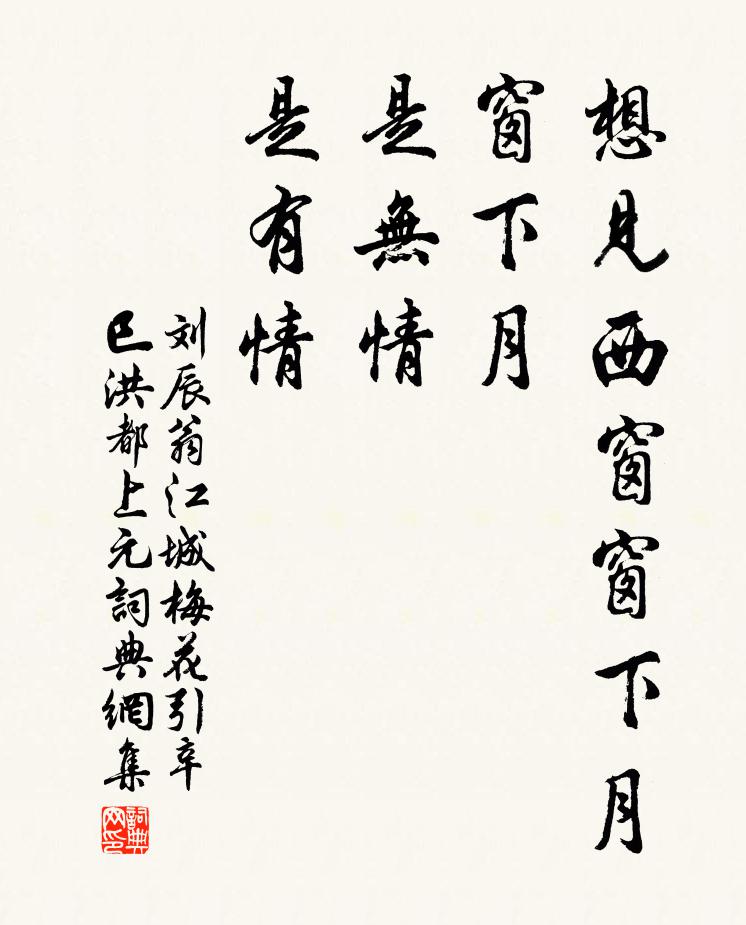 想見西窗窗下月
窗下月
是無情
是有情
刘辰翁江城梅花引辛
巳洪都上元詞典網集
詞典网印